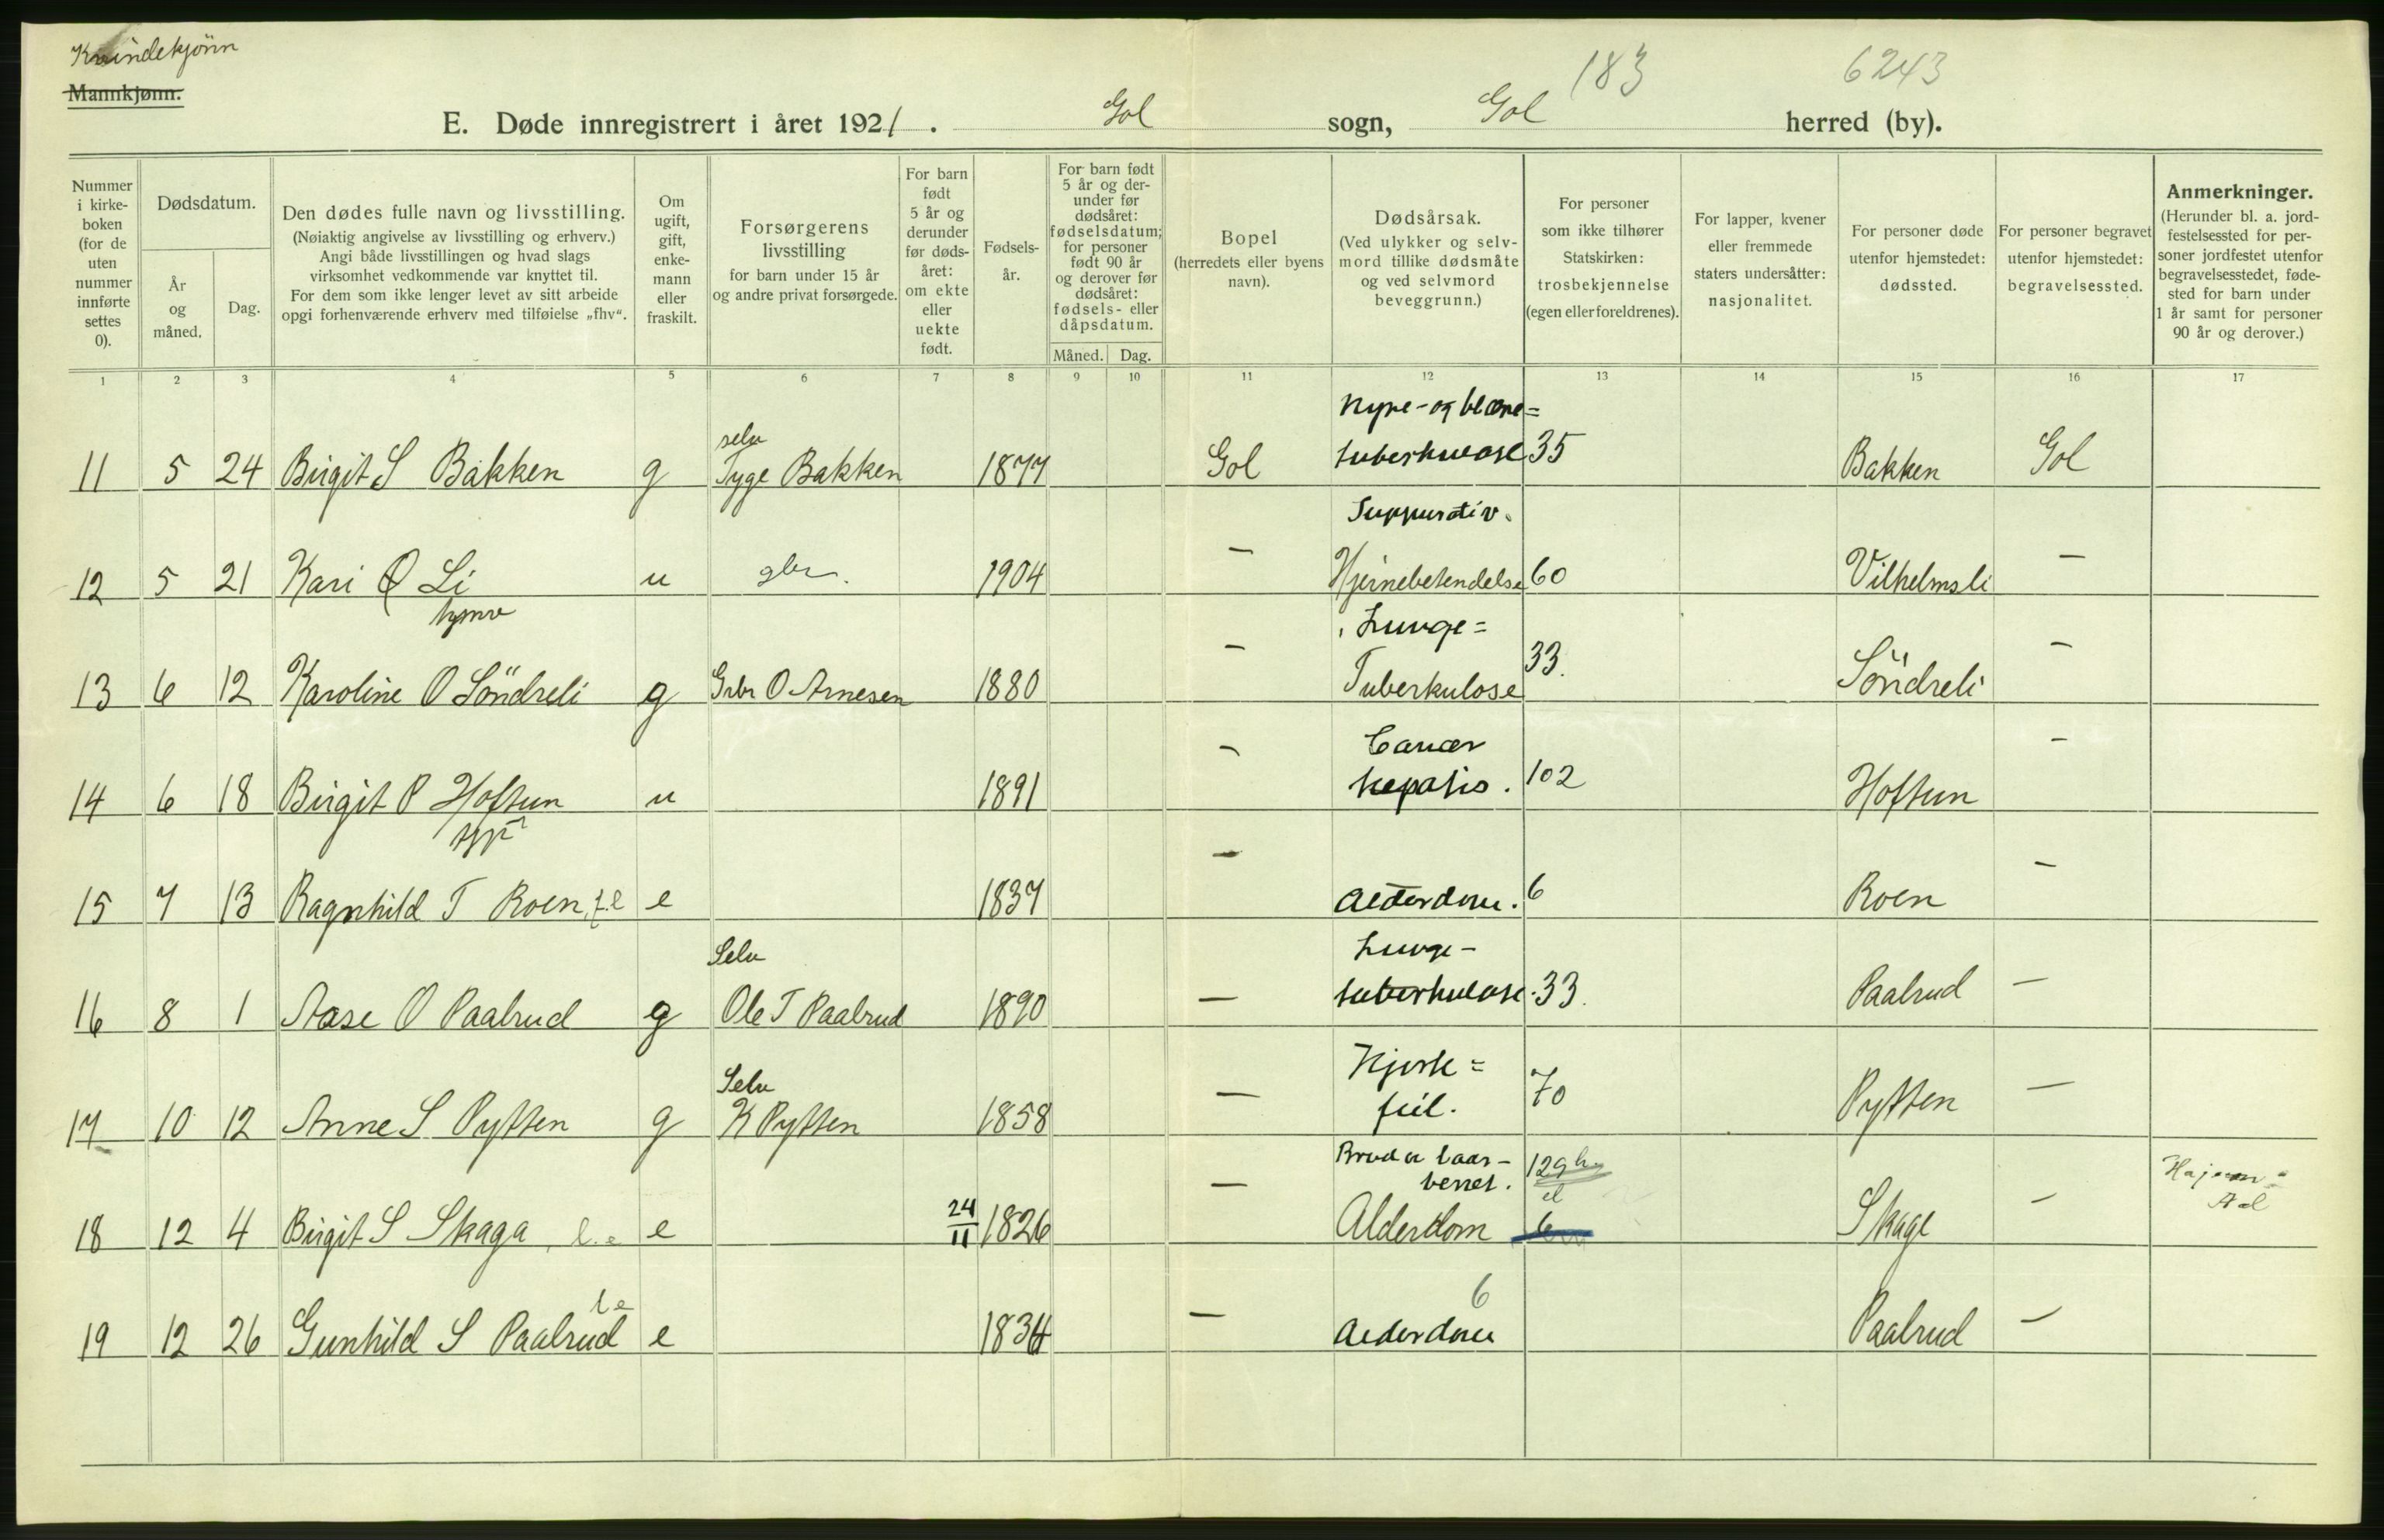 Kvindekjönn
Mannkjønn.
183
6243
E. Døde innregistrert i året 1921. Gol sogn, Gol herred (by).
Nummer i kirkeboken (for de uten nummer innførte settes 0).
Dødsdatum.
År og måned.
Dag.
Den dødes fulle navn og livsstilling.
(Nøiaktig angivelse av livsstilling og erhverv.)
Angi både livsstillingen og hvad slags
virksomhet vedkommende var knyttet til.
For dem som ikke lenger levet av sitt arbeide
opgi forhenværende erhverv med tilføielse „fhv“.
Om ugift, gift, enkemann eller fraskilt.
Forsørgerens livsstilling
for barn under 15 år
og andre privat forsørgede.
For barn født 5 år og derunder før dødsåret: om ekte eller uekte født.
Fødselsår.
For barn født 5 år og derunder før dødsåret: fødselsdatum; for personer født 90 år og derover før dødsåret: fødsels- eller dåpsdatum.
Måned. Dag.
Bopel
(herredets eller byens navn).
Dødsårsak.
(Ved ulykker og selvmord tillike dødsmåte og ved selvmord beveggrunn.)
For personer som ikke tilhører Statskirken: trosbekjennelse (egen eller foreldrenes).
For lapper, kvener eller fremmede staters undersåtter: nasjonalitet.
For personer døde utenfor hjemstedet: dødssted.
For personer begravet utenfor hjemstedet: begravelsessted.
Anmerkninger.
(Herunder bl. a. jordfestelsessted for personer jordfestet utenfor begravelsesstedet, fødested for barn under 1 år samt for personer 90 år og derover.)
1 2 3 4 5 6 7 8 9 10 11 12 13 14 15 16 17
selv Nyre- og blære=
11 5 24 Birgit S Bakken g Tyge Bakken 1877 Gol tuberkulose 35 Bakken Gol
Suppurativ.
12 5 21 Kari O Li u gbr. 1904 — Hjernebetendelse 60 Vilhelmsli —
Lunge=
13 6 12 Karoline O Söndreli g Grbr O Arnesen 1880 — Tuberkulose 33. Söndreli —
Cancer
14 6 18 Birgit P Hoftun u 1891 — hepatis. 102 Hoftun —
15 7 13 Ragnhild T Roen, f.e e 1837 — Alderdom. 6 Roen —
Selv Lunge-
16 8 1 Aase O Paalrud g Ole T Paalrud 1890 — tuberkulose. 33. Paalrud —
Selv Hjerte=
17 10 12 Anne S Pytten g K Pytten 1858 — feil. 70 Pytten —
Brud a laarbenet. 129
18 12 4 Birgit S Skaga, l.e e 24/11 1826 — Alderdom 6 Skage — Aal
l e 6
19 12 26 Gunhild S Paalrud e 1834 — Alderdom Paalrud —